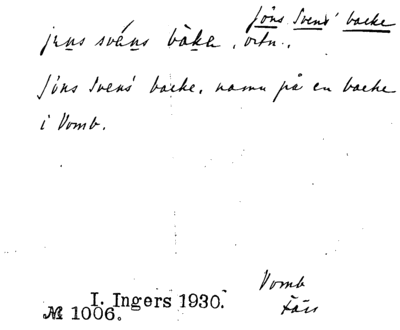 Jöns Svens' backe
jens sväns bàka, ortn.,
Jöns Svens' backe, namn på en backe
i Vomb.
Vomb
Färs
I. Ingers 1930.
№ 1006.